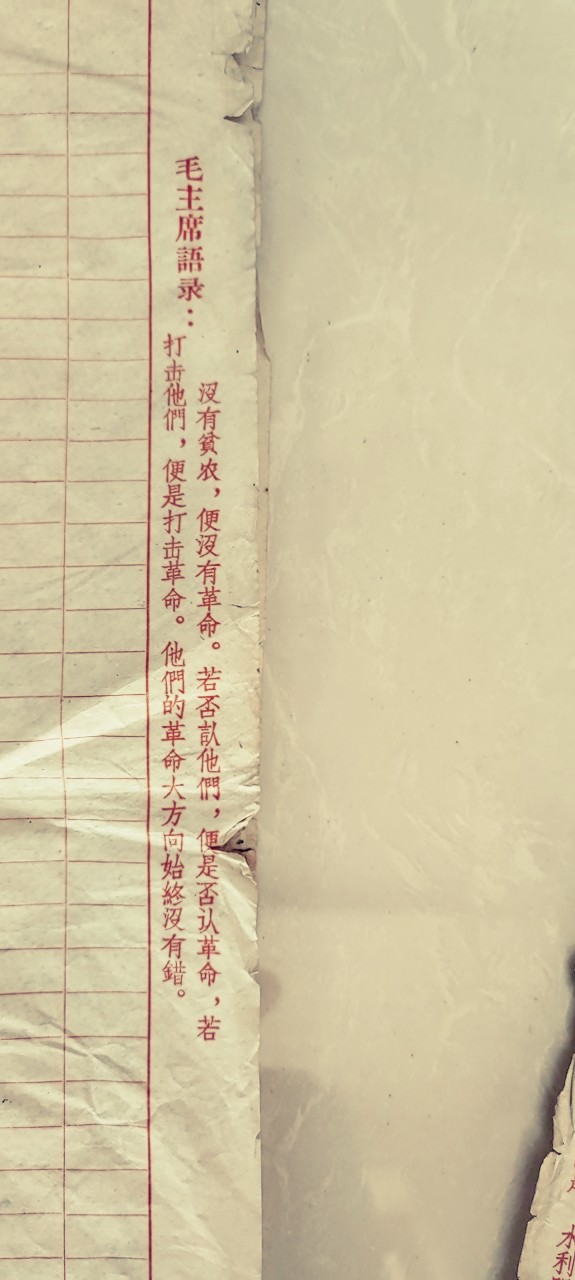 毛主席語录：
没有貧农，便没有革命。若否认他們，便是否认革命，若
打击他們，便是打击革命。他們的革命大方向始終没有錯。
水利